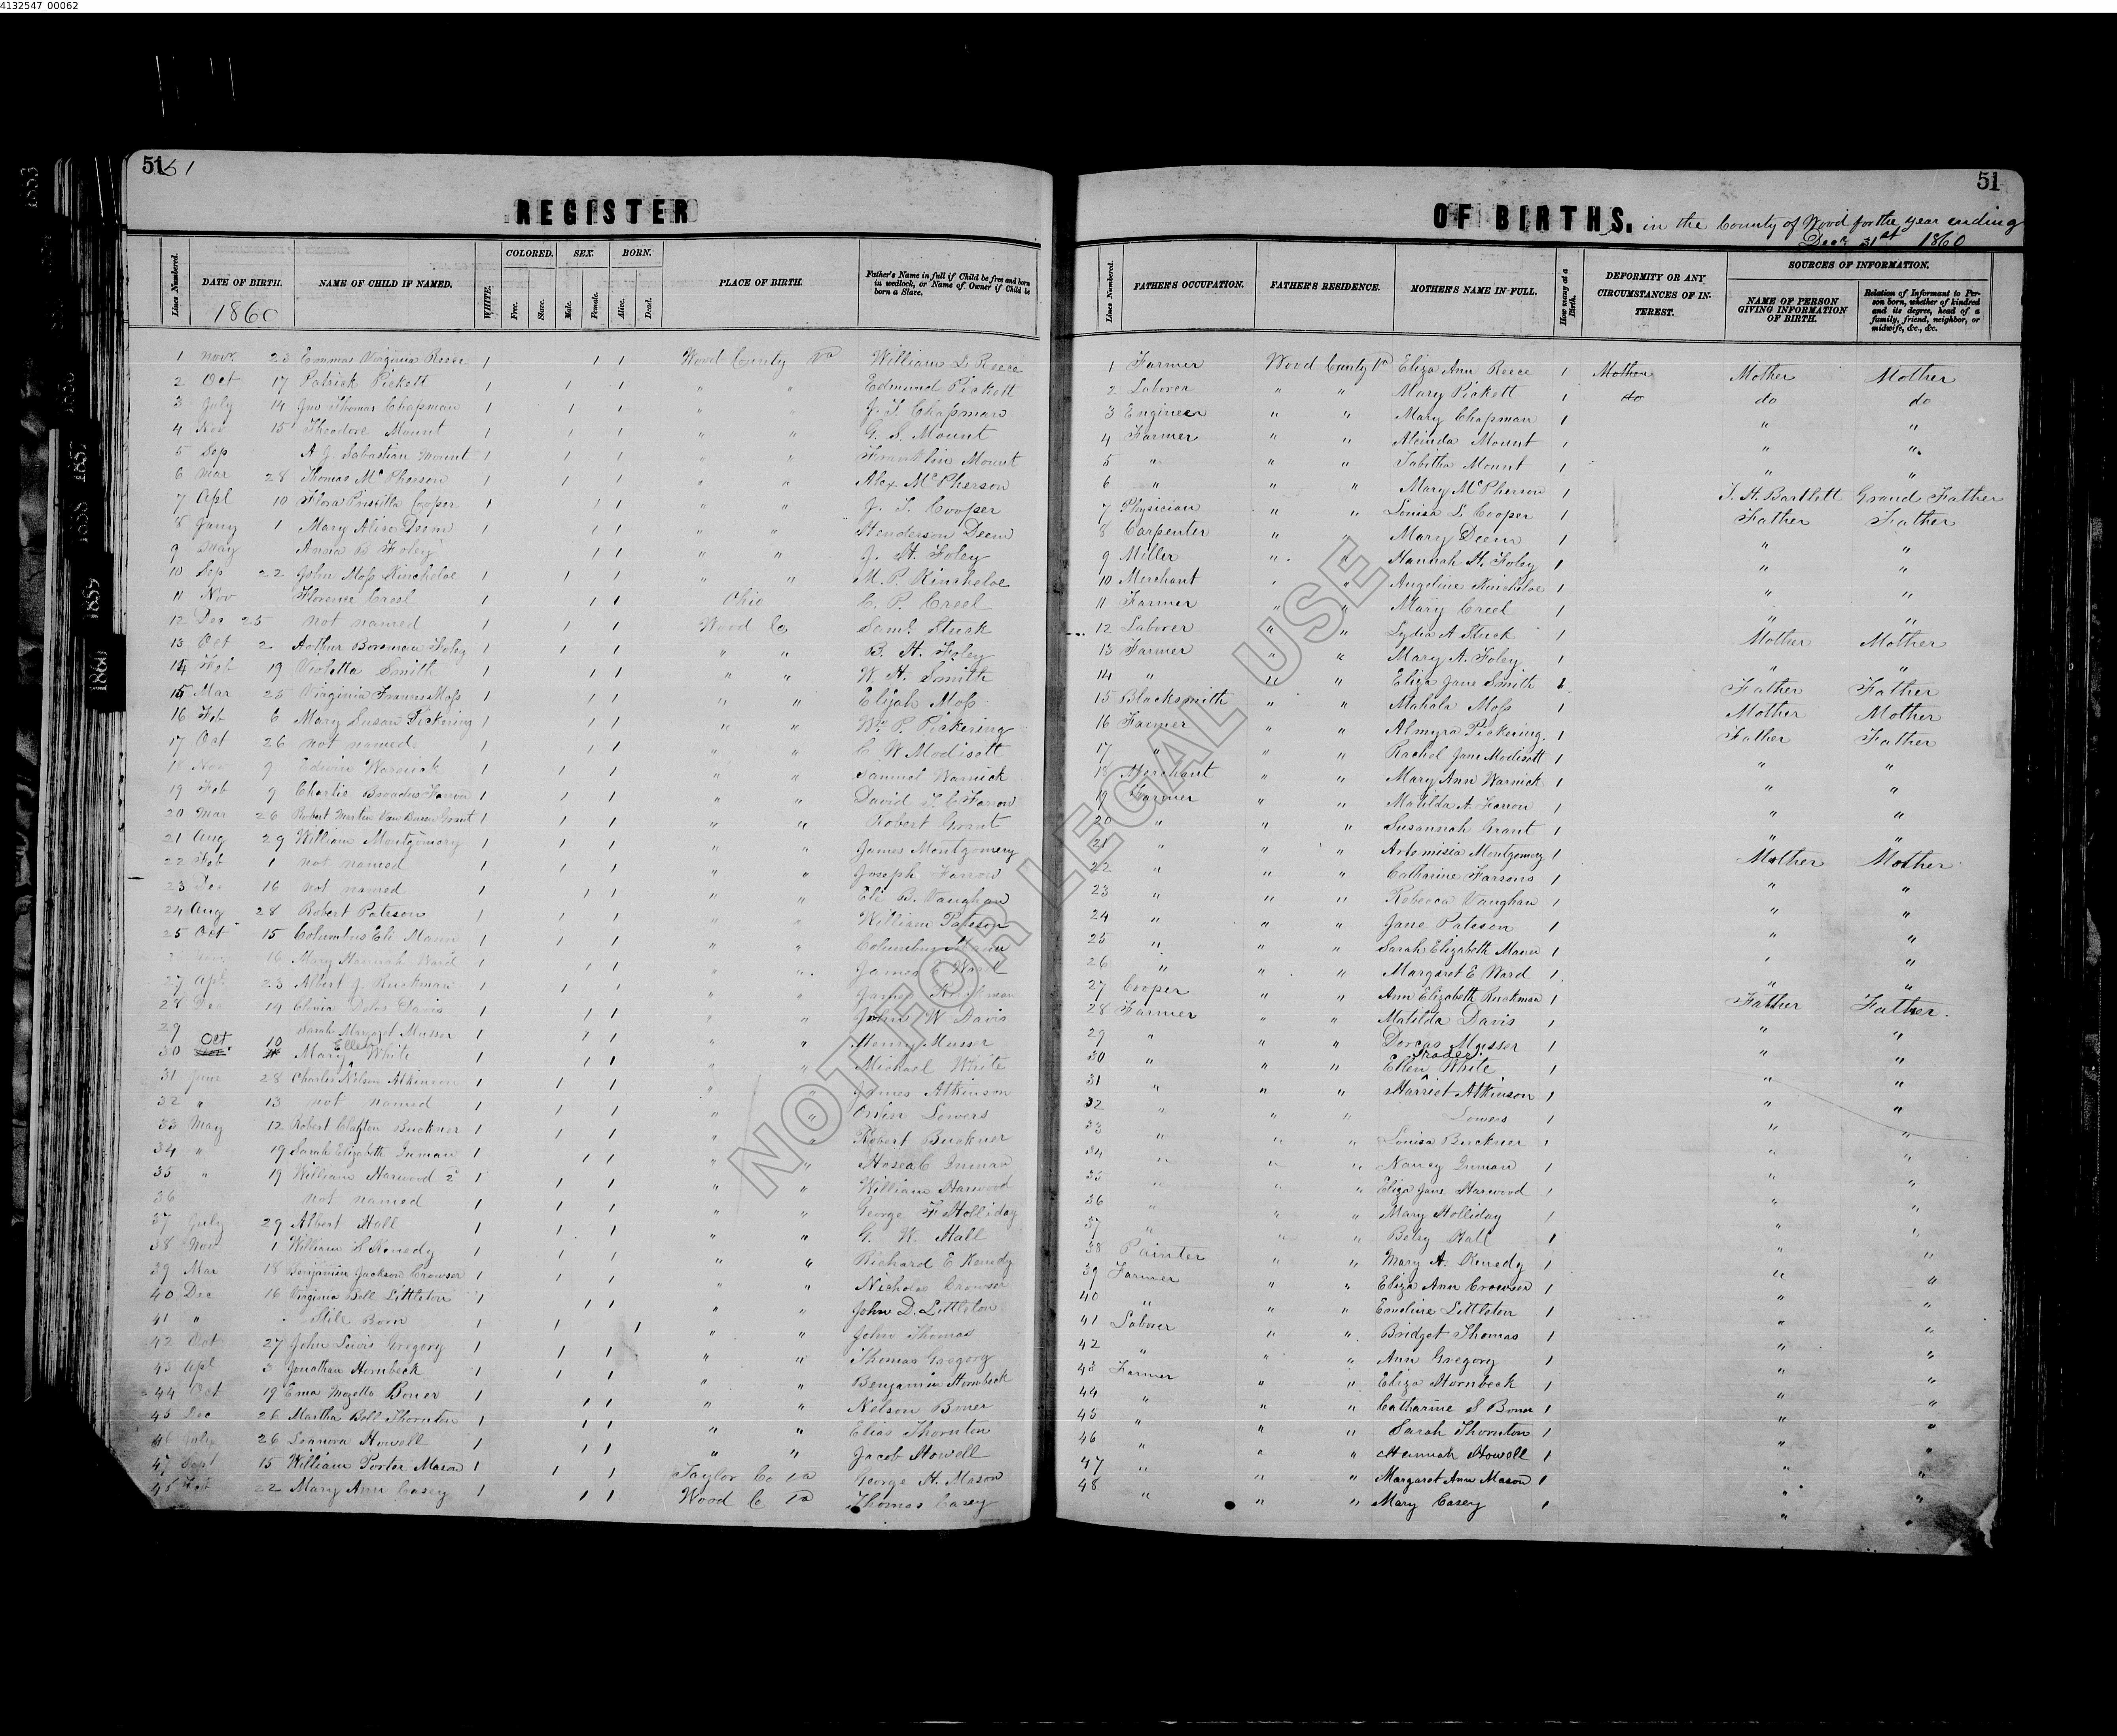 4132547_00062
51 51
REGISTER
Lines Numbered. DATE OF BIRTH. NAME OF CHILD IF NAMED. WHITE. COLORED. Free. Slave. SEX. Male. Female. BORN. Alive. Dead. PLACE OF BIRTH. Father's Name in full if Child be free and born in wedlock, or Name of Owner if Child be born a Slave.
1860
1 Novr. 23 Emma Virginia Reese 1 1 1 Wood County Va William L Reece
2 Oct 17 Patrick Pickett 1 1 1 " " Edmund Pickett
3 July 14 Jno Thomas Chapman 1 1 1 " " J. T. Chapman
4 Nov 15 Theodore Mount 1 1 1 " " G. S. Mount
5 Sep A J Sabastian Mount 1 1 1 " " Franklin Mount
6 Mar 28 Thomas McPherson 1 1 1 " " Alex McPherson
7 Apl 10 Flora Priscilla Cooper 1 1 1 " " J. T. Cooper
8 Jany 1 Mary Alise Deem 1 1 1 " " Henderson Deem
9 May Anna B Foley 1 1 " " J. H. Foley
10 Sep 22 John Moss Kincheloe 1 1 1 " " M. P. Kinsheloe
11 Nov Florence Creel 1 1 1 Ohio C. P. Creel
12 Dec 25 not named 1 1 1 Wood Co Saml. Stuck
13 Oct 2 Arthur Boreman Foley 1 1 1 " " B. H. Foley
14 Feb 19 Violetta Smith 1 1 1 " " W. H. Smith
15 Mar 25 Virginia Frances Moss 1 1 1 " " Elijah Moss
16 Feb 6 Mary Susan Pickering 1 1 1 " " Wm P. Pickering
17 Oct 26 not named 1 1 1 " " C. W Modisett
18 Nov 9 Edwin Warnick 1 1 1 " " Samuel Warnick
19 Feb 9 Charlie Broadus Farrow 1 1 1 " " David T. C Farrow
20 Mar 26 Robert Martin Van Buren Grant 1 1 1 " " Robert Grant
21 Aug 29 William Montgomery 1 1 1 " " James Montgomery
22 Feb 1 not named 1 1 1 " " Joseph Farrow
23 Dec 16 not named 1 1 1 " " Eli B. Vaughan
24 Aug 28 Robert Pateson 1 1 1 " " William Pateson
25 Oct 15 Columbus Eli Mann 1 1 1 " " Columbus Mann
16 Mary Hannah Ward 1 1 1 " " James Ward
27 Apl 23 Albert J. Ruckman 1 1 1 " " James Ruckman
28 Dec 14 Davis 1 1 1 " " John W Davis
29 Sarah Margaret Musser 1 1 1 " " Henry Musser
30 Oct 10 Mary Ellen White 1 1 1 " " Michael White
31 June 28 Charles Nelson Atkinson 1 1 1 " " James Atkinson
32 " 13 not named 1 1 1 " " Lowers
33 May 12 Robert Clayton Buckner 1 1 1 " " Robert Buckner
34 " 19 Sarah Elizabeth Inman 1 1 1 " " Hosea C Inman
35 " 19 William Harwood 2d 1 1 1 " " William Harwood
36 not named 1 1 1 " " George F Holliday
37 July 29 Albert Hall 1 1 1 " " G. W. Hall
38 Nov 1 William S Kenedy 1 1 1 " " Richard E Kenedy
39 Mar 18 Benjamin Jackson Crowser 1 1 1 " " Nicholas Crowser
40 Dec 16 Virginia Bell Littleton 1 1 1 " " John D. Littleton
41 " Still Born 1 1 1 " " John Thomas
42 Oct 27 John Lewis Gregory 1 1 1 " " Thomas Gregory
43 Apl 3 Jonathan Hornbeck 1 1 1 " " Benjamin Hornbeck
44 Oct 19 Ema Mozella Boner 1 1 1 " " Nelson Boner
45 Dec 26 Martha Bell Thornton 1 1 1 " " Elias Thornton
46 July 26 Leanora Howell 1 1 1 " " Jacob Howell
47 Sept 15 William Porter Mason 1 1 1 Taylor Co Va George H. Mason
48 22 Mary Ann Casey 1 1 1 Wood C Va Thomas Casey
51
OF BIRTHS. in the County of Wood for the year ending
Decr 31st 1860
Lines Numbered. FATHER'S OCCUPATION. FATHER'S RESIDENCE. MOTHER'S NAME IN FULL. How many at a Birth. DEFORMITY OR ANY CIRCUMSTANCES OF INTEREST. SOURCES OF INFORMATION. NAME OF PERSON GIVING INFORMATION OF BIRTH. Relation of Informant to Person born, whether of kindred and its degree, head of a family, friend, neighbor, or midwife, &c., &c.
1 Farmer Wood County Va Eliza Ann Reece 1 Mother Mother Mother
2 Laborer " " Mary Pickett 1 do do do
3 Engineer " " Mary Chapman 1 " "
4 Farmer " " Alcinda Mount 1 " "
5 " " " Tabitha Mount 1 " "
6 " " " Mary McPherson 1 J. H. Bartlett Grand Father
7 Physician " " Louisa L. Cooper 1 Father Father
8 Carpenter " " Mary Deem 1 " "
9 Miller " " Hannah H. Foley 1 " "
10 Merchant " " Angeline Kincheloe 1 " "
11 Farmer " " Mary Creel 1 " "
12 Laborer " " Lydia A Stuck 1 Mother Mother
13 Farmer " " Mary A. Foley 1 " "
14 " " " Eliza Jane Smith 1 Father Father
15 Blacksmith " " Mahala Moss 1 Mother Mother
16 Farmer " " Almyra Pickering. 1 Father Father
17 " " " Rachel Jane Modisett 1 " "
18 Merchant " " Mary Ann Warnick 1 " "
19 Farmer " " Matilda A. Farrow 1 " "
20 " " " Susannah Grant 1 " "
21 " " " Artemisia Montgomery 1 Mother Mother
22 " " " Catharine Farsons 1 " "
23 " " " Rebecca Vaughan 1 " "
24 " " " Jane Pateson 1 " "
25 " " " Sarah Elizabeth Mann 1 " "
26 " " " Margaret E Ward 1 " "
27 Cooper " " Ann Elizabeth Ruckman 1 Father Father
28 Farmer " " Matilda Davis 1 " "
29 " " " Dorcas Musser 1 " "
30 " " " Ellen White 1 " "
31 " " " Harriet Atkinson 1 " "
32 " " " Lowers 1 " "
33 " " " Louisa Buckner 1 " "
34 " " " Nancy Inman 1 " "
35 " " " Eliza Jane Harwood 1 " "
36 " " " Mary Holliday 1 " "
37 " " " Betsy Hall 1 " "
38 Painter " " Mary A. Kenedy 1 " "
39 Farmer " " Eliza Ann Crowser 1 " "
40 " " " Emeline Littleton 1 " "
41 Laborer " " Bridget Thomas 1 " "
42 " " " Ann Gregory 1 " "
43 Farmer " " Eliza Hornbeck 1 " "
44 " " " Catharine S Boner 1 " "
45 " " " Sarah Thornton 1 " "
46 " " " Hannah Howell 1 " "
47 " " " Margaret Ann Mason 1 " "
48 " " " Mary Casey 1 " "
1853
1856
1857
1858
1859
1860
NOT FOR LEGAL USE